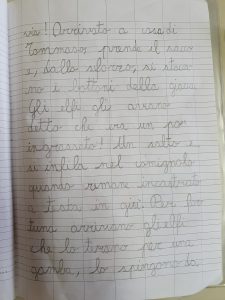 via! Arrivato a casa di
Tommaso, prende il sacco
e, dallo sforzo, si stacca
no i bottoni della giacca
Gli elfi gli avevano
detto che era un po'
ingrassato! Un salto e
si infila nel comignolo
quando rimane incastrato
a testa in giù. Per for
tuna arrivano gli elfi
che lo tirano per una
gamba, lo spingono da